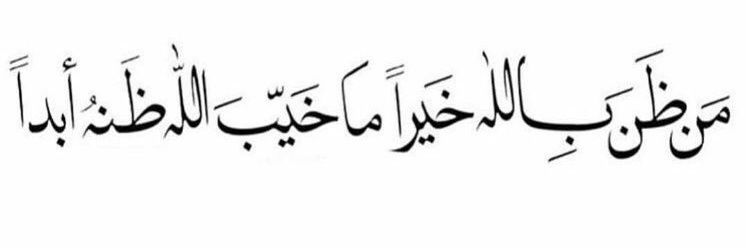 مَن ظَنَ بِاللهِ خَيراً ما خَيّبَ اللّٰه ظَنهُ أبداً